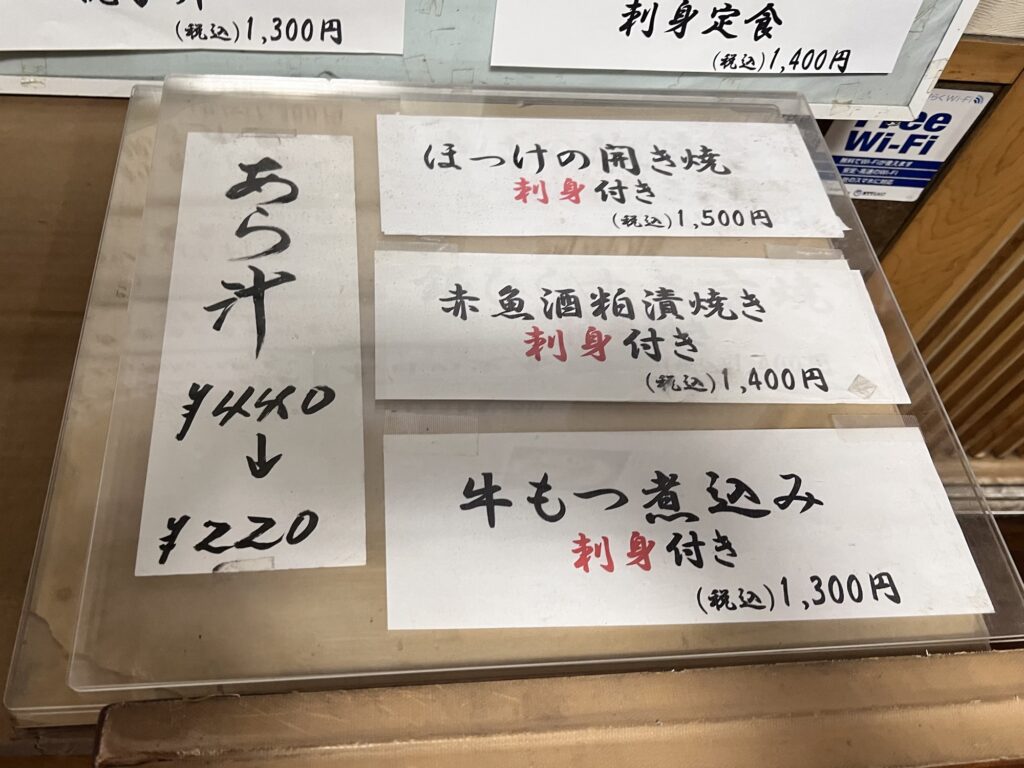 (税込)1,300円
刺身定食
(税込)1,400円
あら汁
¥440
↓
¥220
ほっけの開き焼
刺身付き
(税込)1,500円
赤魚酒粕漬焼き
刺身付き
(税込)1,400円
牛もつ煮込み
刺身付き
(税込)1,300円
Free
Wi-Fi
無料でWi-Fiが使えます